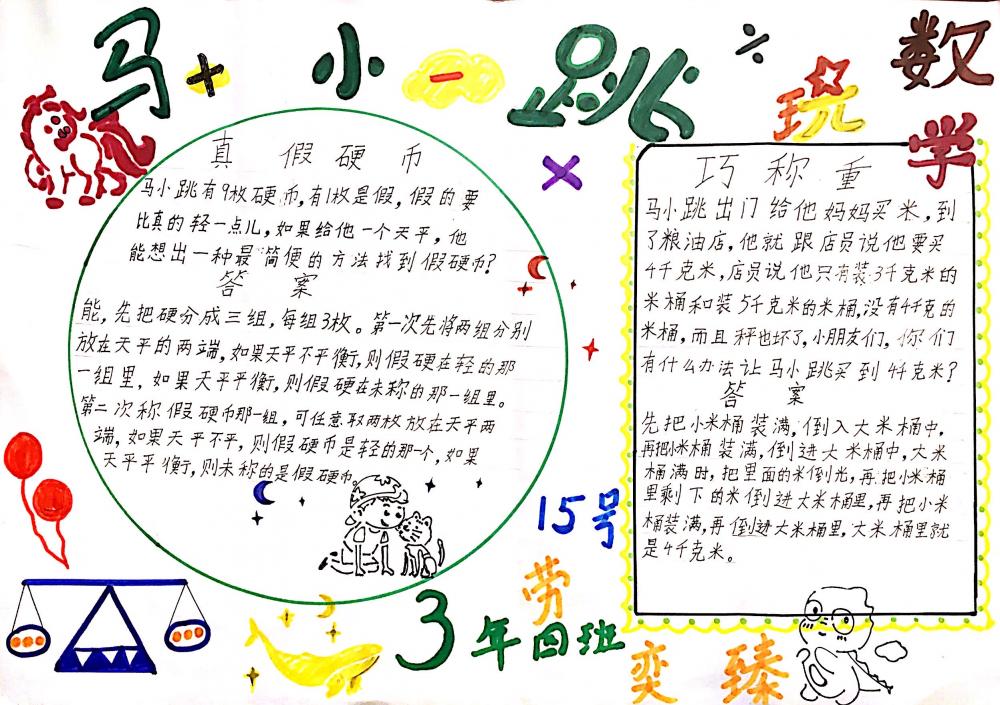 马 + 小 - 跳 ÷ 玩 数
×
学
真 假硬币
马小跳有9枚硬币,有1枚是假,假的要
比真的轻一点儿,如果给他一个天平,他
能想出一种最简便的方法找到假硬币?
答案
能,先把硬分成三组,每组3枚。第一次先将两组分别
放在天平的两端,如果天平不平衡,则假硬在轻的那
一组里,如果天平平衡,则假硬在未称的那一组里。
第二次称假硬币那一组,可任意取两枚放在天平两
端,如果天平不平,则假硬币是轻的那一个,如果
天平平衡,则未称的是假硬币。
巧称重
马小跳出门给他妈妈买米,到
了粮油店,他就跟店员说他要买
4千克米,店员说他只有装3千克米的
米桶和装5千克米的米桶,没有4千克的
米桶,而且秤也坏了,小朋友们,你们
有什么办法让马小跳买到4千克米?
答案
先把小米桶装满,倒入大米桶中,
再把小米桶装满,倒进大米桶中,大米
桶满时,把里面的米倒光,再把小米桶
里剩下的米倒进大米桶里,再把小米
桶装满,再倒进大米桶里,大米桶里就
是4千克米。
15号
劳
3年四班
奕臻